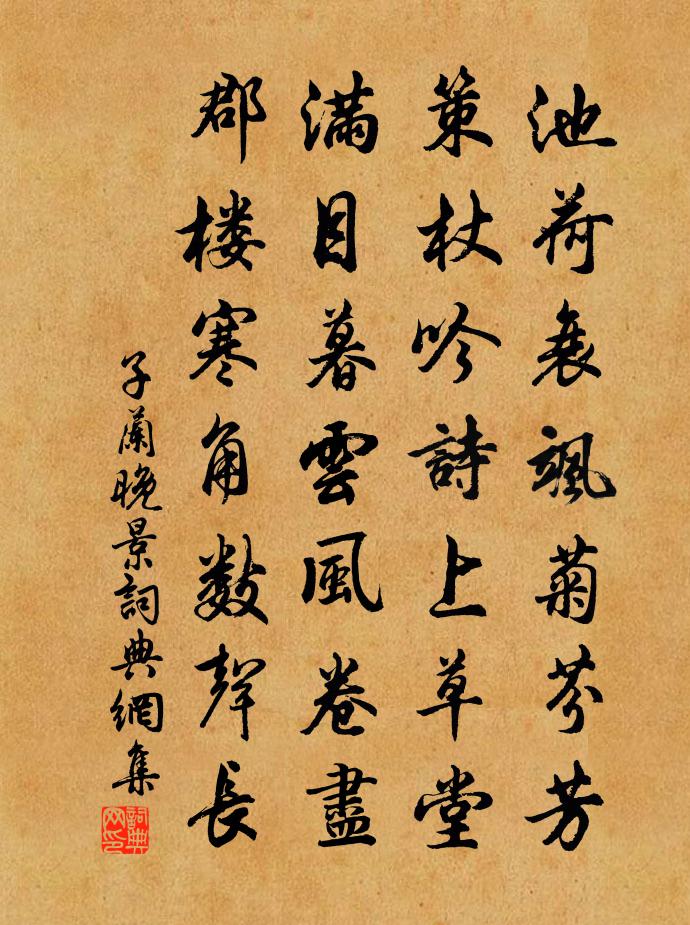 池荷衰颯菊芬芳
策杖吟詩上草堂
滿目暮雲風卷盡
郡樓寒角數聲長
子蘭晚景詞典網集
詞典網印